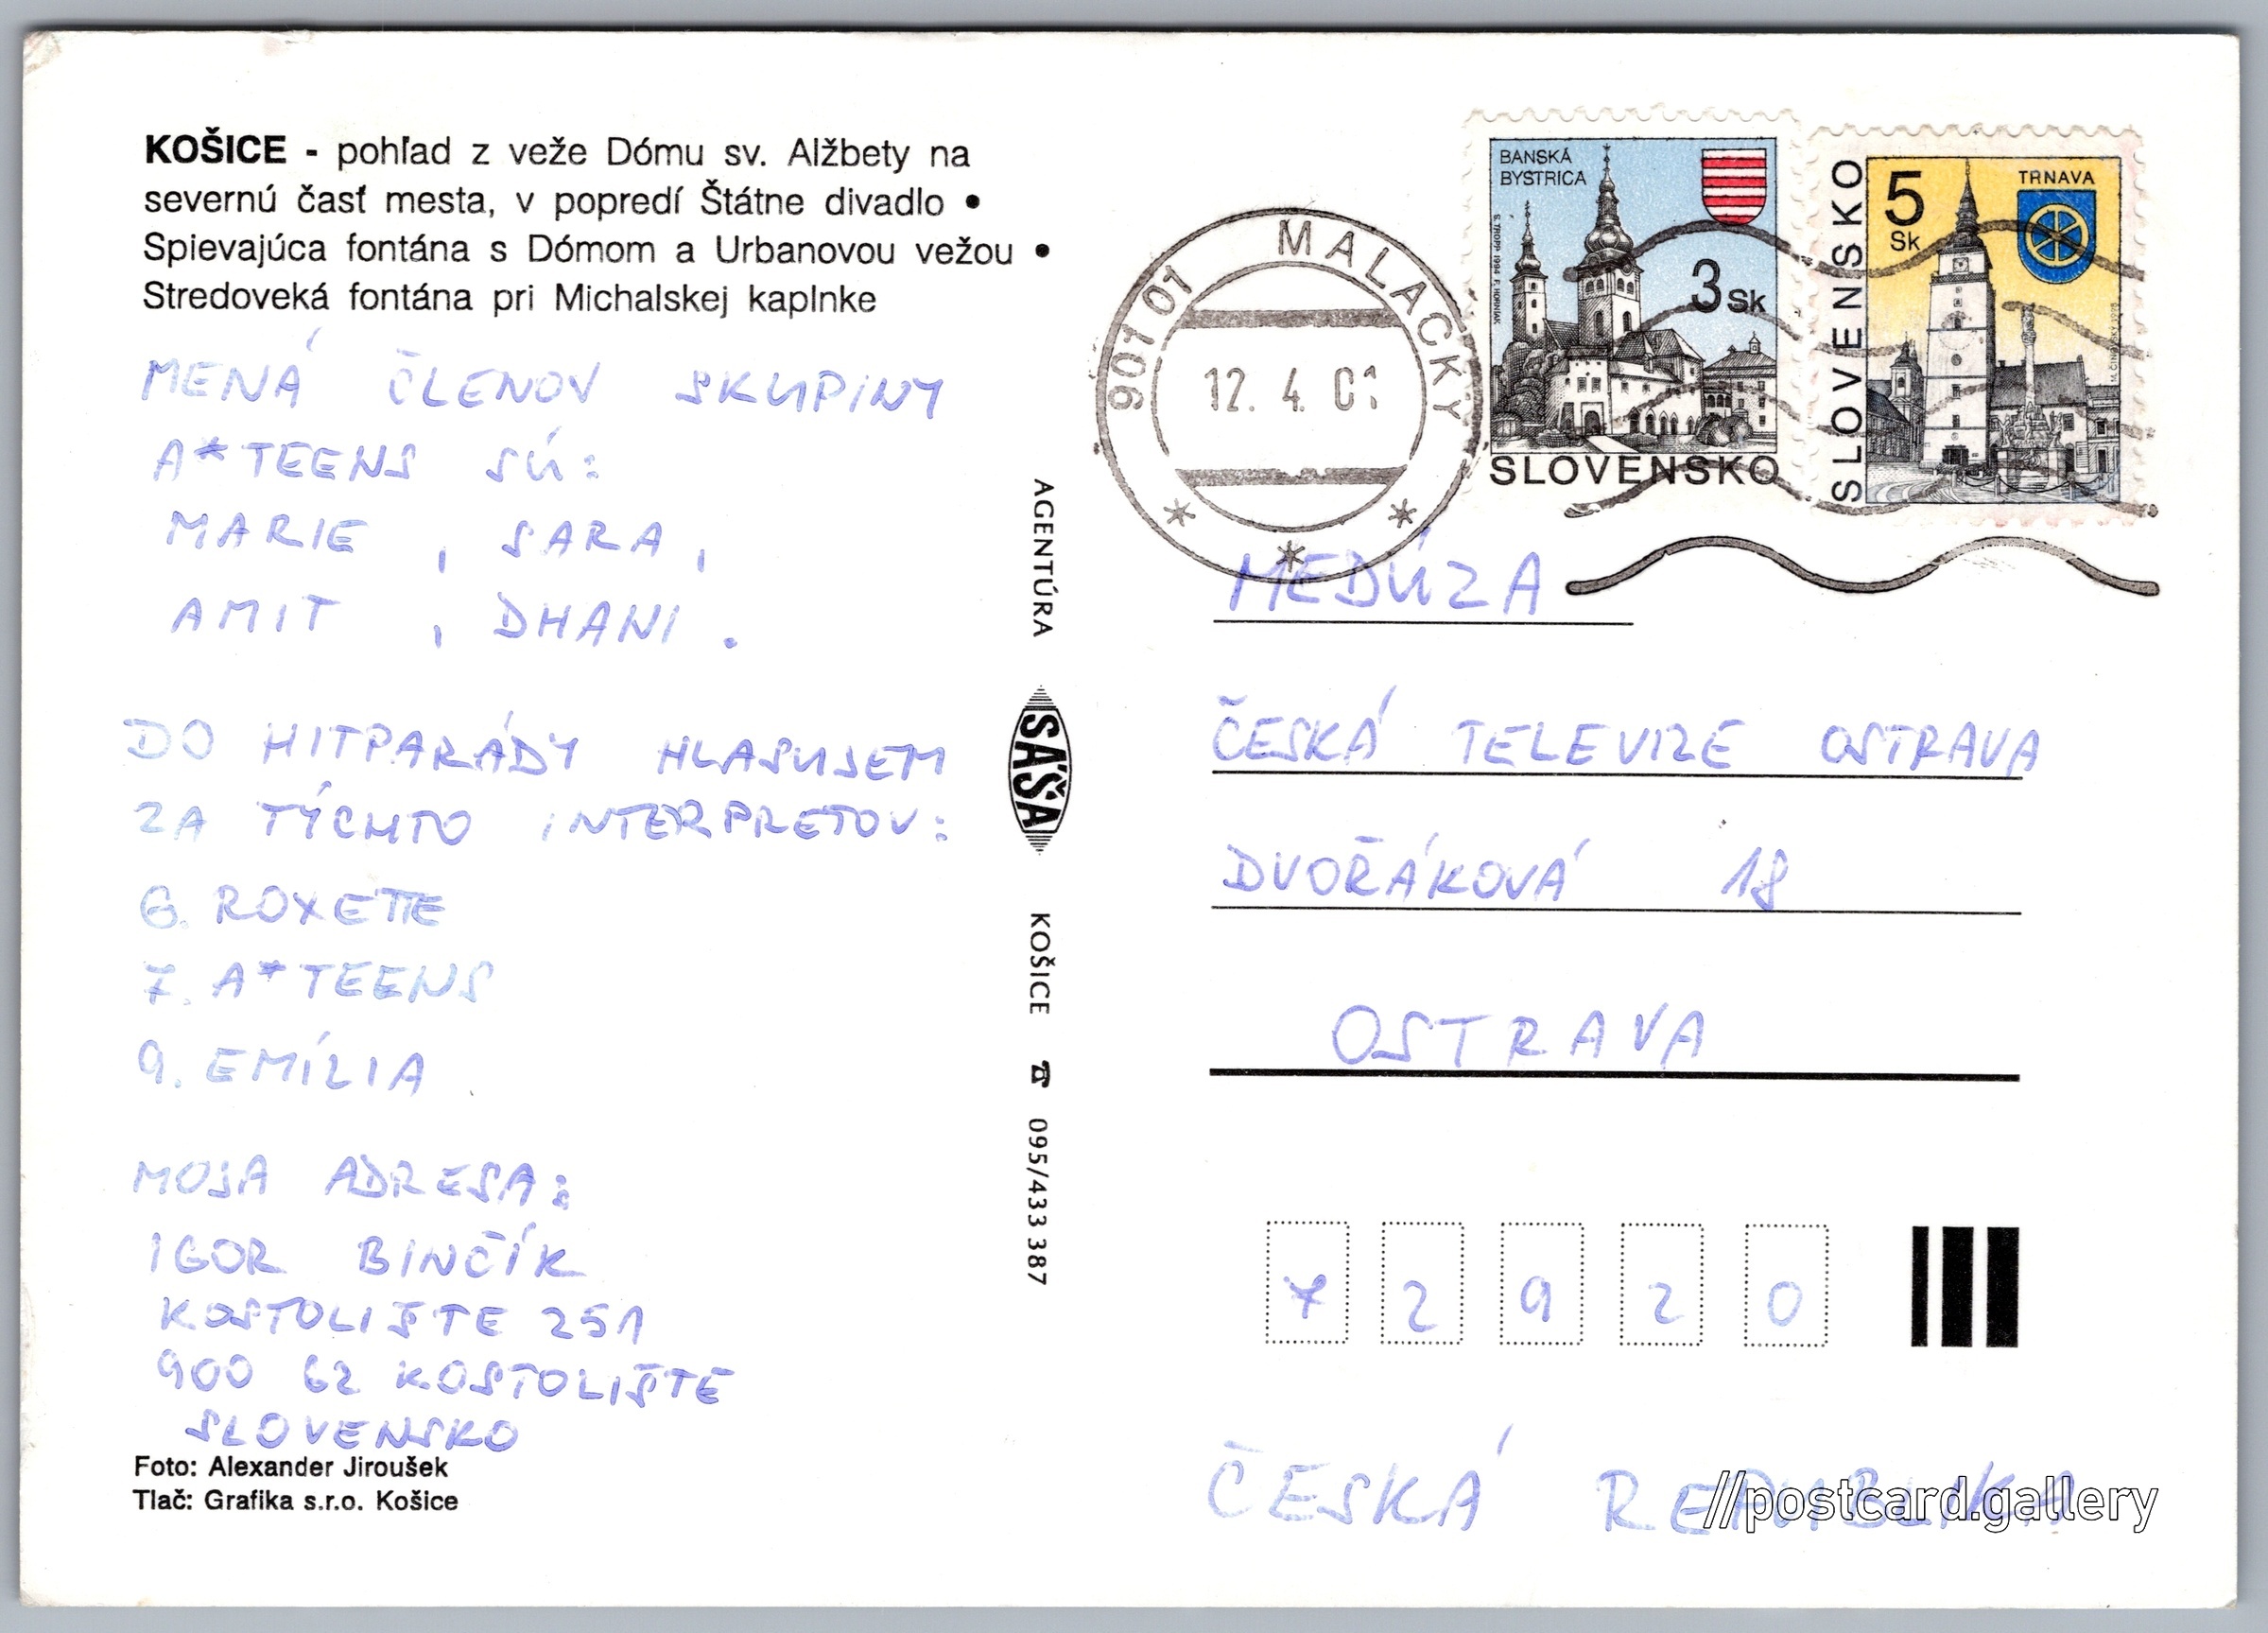 KOŠICE - pohľad z veže Dómu sv. Alžbety na
severnú časť mesta, v popredí Štátne divadlo •
Spievajúca fontána s Dómom a Urbanovou vežou •
Stredoveká fontána pri Michalskej kaplnke
MENÁ ČLENOV SKUPINY
A*TEENS SÚ:
MARIE, SARA,
AMIT, DHANI.
DO HITPARÁDY HLASUJEM
ZA TÝCHTO INTERPRETOV:
6. ROXETTE
7. A*TEENS
9. EMÍLIA
MOJA ADRESA:
IGOR BINČÍK
KOSTOLIŠTE 251
900 62 KOSTOLIŠTE
SLOVENSKO
Foto: Alexander Jiroušek
Tlač: Grafika s.r.o. Košice
AGENTÚRA SAŠA KOŠICE ☎ 095/433 387
901 01 MALACKY
12. 4. 01
BANSKÁ
BYSTRICA
3 Sk
SLOVENSKO
SLOVENSKO
5 Sk
TRNAVA
MEDÚZA
ČESKÁ TELEVIZE OSTRAVA
DVOŘÁKOVÁ 18
OSTRAVA
7 2 9 2 0
ČESKÁ REPUBLIKA
//postcard.gallery